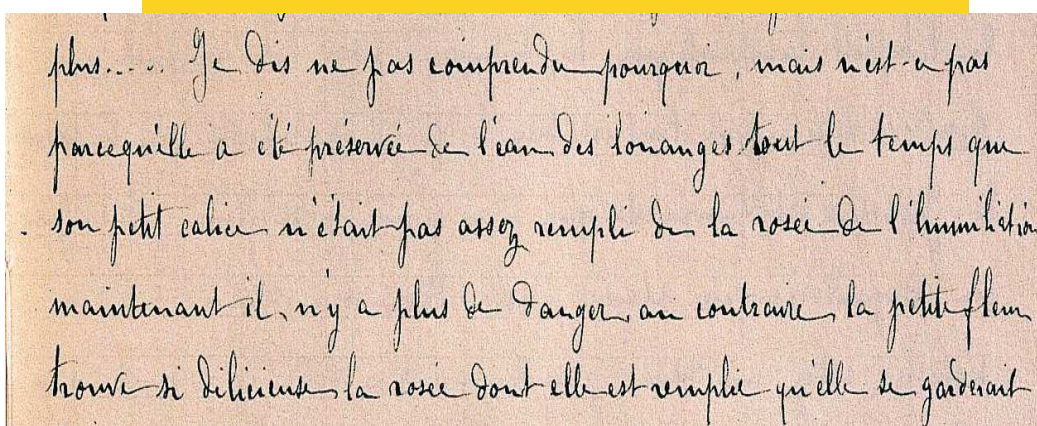 plus..... Je dis ne pas comprendre pourquoi, mais n'est-ce pas
parcequ'elle a été préservée de l'eau des louanges tout le temps que
son petit calice n'était pas assez rempli de la rosée de l'humiliation
maintenant il n'y a plus de danger, au contraire, la petite fleur
trouve si délicieuse la rosée dont elle est remplie qu'elle se garderait